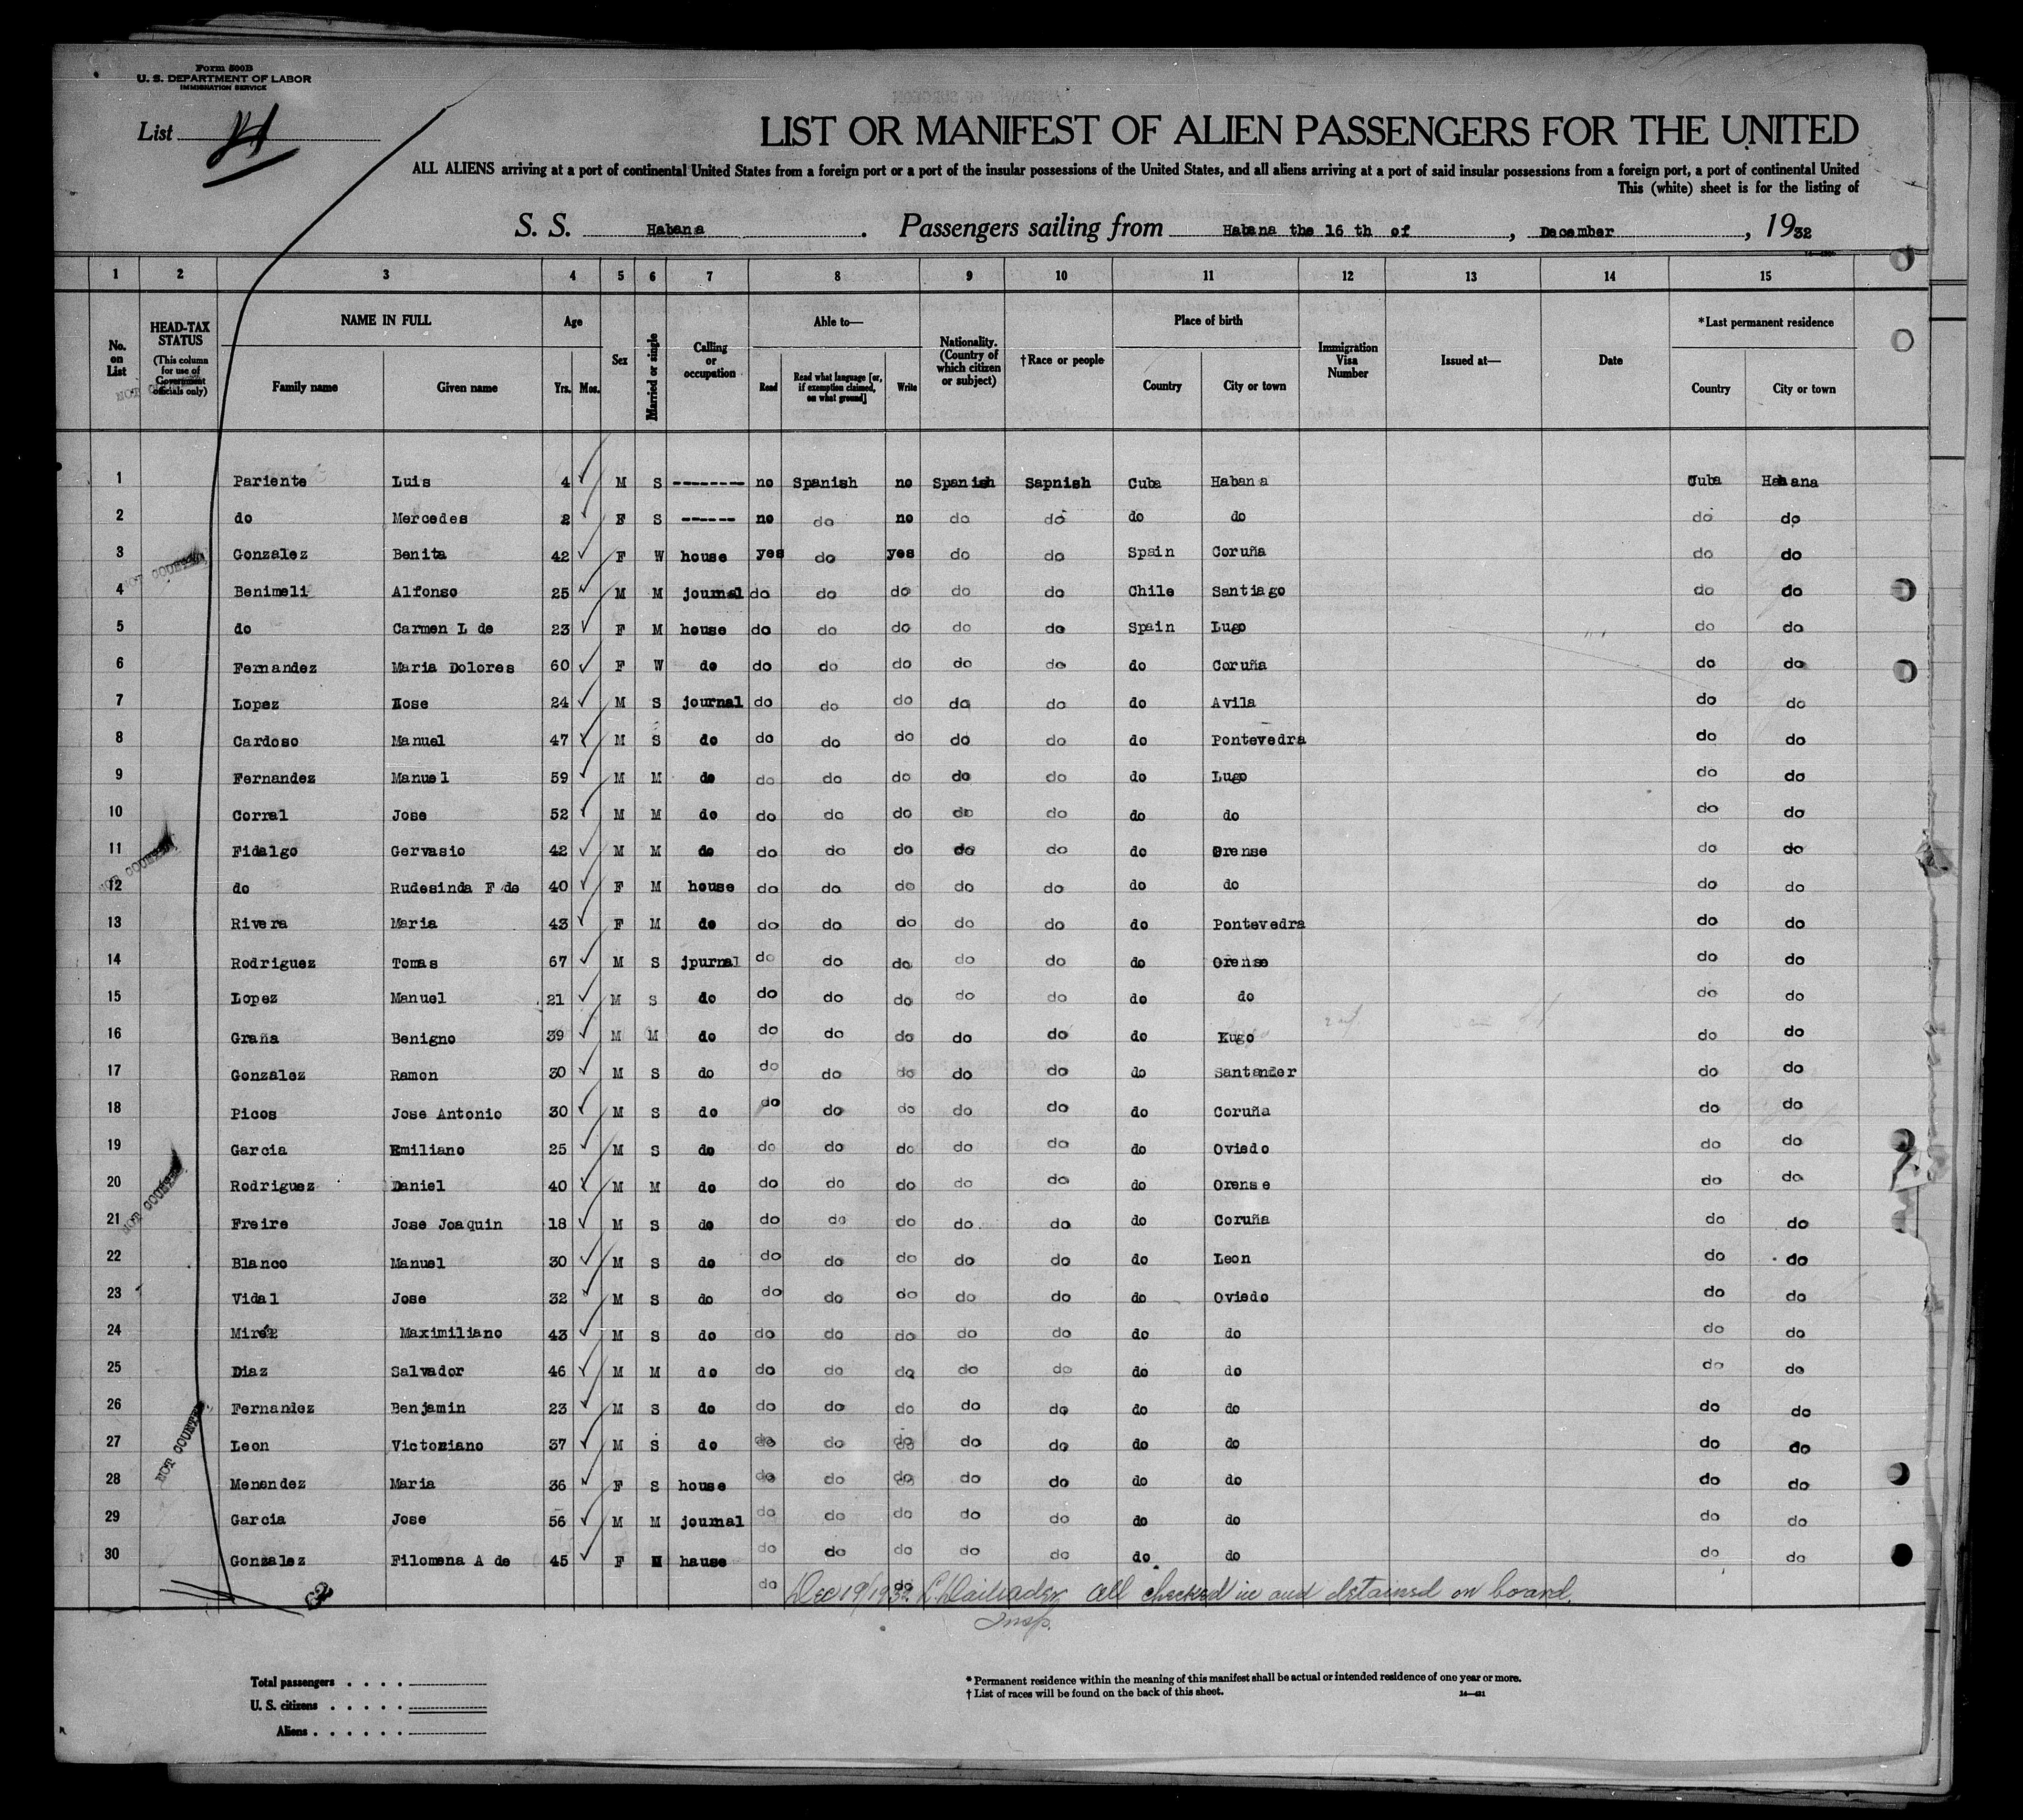 Form 500B
U. S. DEPARTMENT OF LABOR
IMMIGRATION SERVICE
List
LIST OR MANIFEST OF ALIEN PASSENGERS FOR THE UNITED
ALL ALIENS arriving at a port of continental United States from a foreign port or a port of the insular possessions of the United States, and all aliens arriving at a port of said insular possessions from a foreign port, a port of continental United
This (white) sheet is for the listing of
S. S. Habana . Passengers sailing from Habana the 16 th of , December , 1932
1 2 3 4 5 6 7 8 9 10 11 12 13 14 15
No. on List HEAD-TAX STATUS (This column for use of Government officials only) NAME IN FULL Family name Given name Age Yrs. Mos. Sex Married or single Calling or occupation Able to— Read Read what language [or, if exemption claimed, on what ground] Write Nationality. (Country of which citizen or subject) †Race or people Place of birth Country City or town Immigration Visa Number Issued at— Date *Last permanent residence Country City or town
1 Pariente Luis 4 M S -------- no Spanish no Spanish Sapnish Cuba Habana Cuba Habana
2 do Mercedes 2 F S ------ no do no do do do do do do
3 Gonzalez Benita 42 F W house yes do yes do do Spain Coruña do do
4 Benimeli Alfonso 25 M M journal do do do do do Chile Santiago do do
5 do Carmen L de 23 F M house do do do do do Spain Lugo do do
6 Fernandez Maria Dolores 60 F W do do do do do do do Coruña do do
7 Lopez Jose 24 M S journal do do do do do do Avila do do
8 Cardoso Manuel 47 M S do do do do do do do Pontevedra do do
9 Fernandez Manuel 59 M M do do do do do do do Lugo do do
10 Corral Jose 52 M M do do do do do do do do do do
11 Fidalgo Gervasio 42 M M do do do do do do do Orense do do
12 do Rudesinda F de 40 F M house do do do do do do do do do
13 Rivera Maria 43 F M do do do do do do do Pontevedra do do
14 Rodriguez Tomas 67 M S jpurnal do do do do do do Orense do do
15 Lopez Manuel 21 M S do do do do do do do do do do
16 Graña Benigno 39 M M do do do do do do do Kugo do do
17 Gonzalez Ramon 30 M S do do do do do do do Santander do do
18 Picos Jose Antonio 30 M S do do do do do do do Coruña do do
19 Garcia Emiliano 25 M S do do do do do do do Oviedo do do
20 Rodriguez Daniel 40 M M do do do do do do do Orense do do
21 Freire Jose Joaquin 18 M S do do do do do do do Coruña do do
22 Blanco Manuel 30 M S do do do do do do do Leon do do
23 Vidal Jose 32 M S do do do do do do do Oviedo do do
24 Maximiliano 43 M S do do do do do do do do do do
25 Diaz Salvador 46 M M do do do do do do do do do do
26 Fernandez Benjamin 23 M S do do do do do do do do do do
27 Leon Victoriano 37 M S do do do do do do do do do do
28 Menendez Maria 36 F S house do do do do do do do do do
29 Garcia Jose 56 M M journal do do do do do do do do do
30 Gonzalez Filomena A de 45 F M hause do do do do do do do do do
do do
Dec 19/1932 All checked in and detained on board.
Insp.
NOT COUNTED
NOT COUNTED
NOT COUNTED
NOT COUNTED
Total passengers
U. S. citizens
Aliens
* Permanent residence within the meaning of this manifest shall be actual or intended residence of one year or more.
† List of races will be found on the back of this sheet.